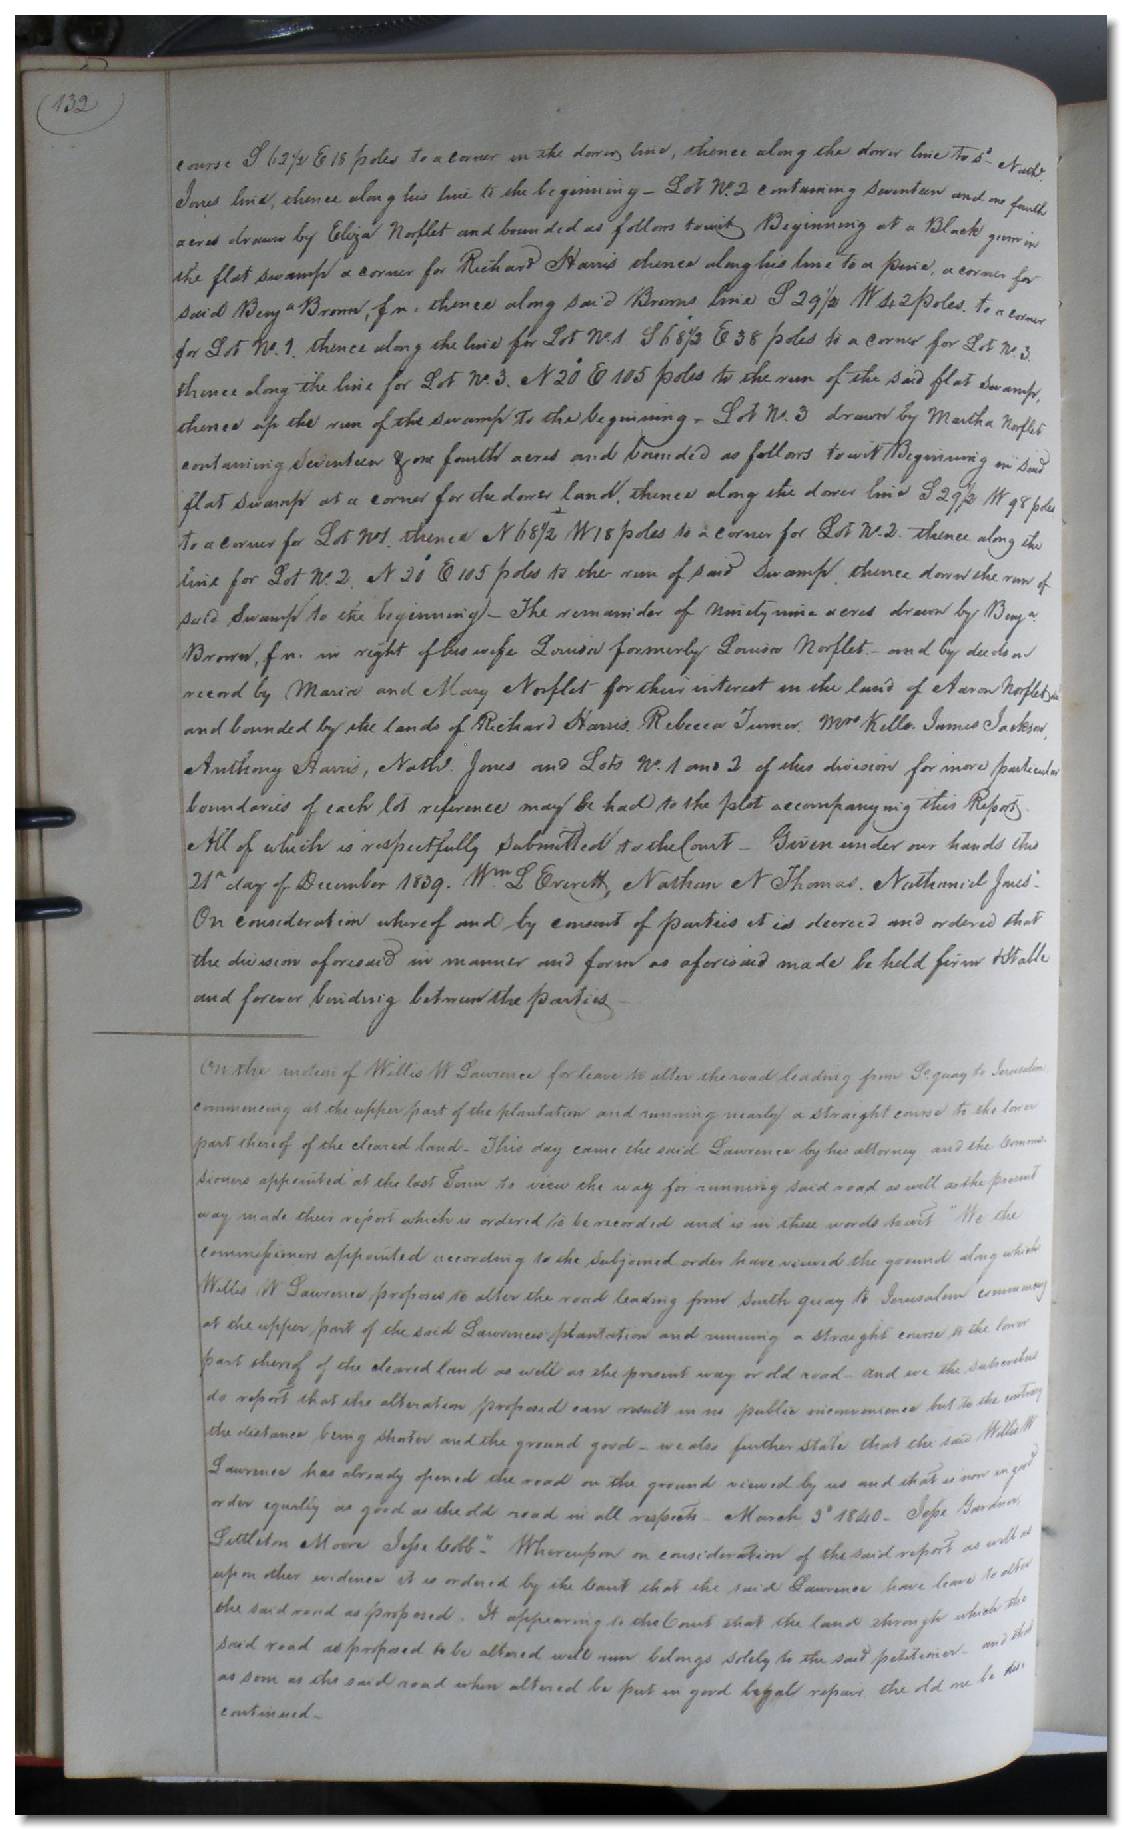 132
course S 62½ E 18 poles to a corner in the dower line, thence along the dower line to sd Nathl.
Jones line, thence along his line to the beginning – Lot No. 2 containing seventeen and one fourth
acres drawn by Eliza Norflet and bounded as follows towit, Beginning at a Black gum in
the flat swamp a corner for Richard Harris thence along his line to a pine, a corner for
said Benja Brown, f n. thence along said Browns line S 29½ W 42 poles to a corner
for Lot No. 1. thence along the line for Lot No. 1 S 68½ E 38 poles to a corner for Lot No. 3.
thence along the line for Lot No. 3. N 20° E 105 poles to the run of the said flat swamp,
thence up the run of the swamp to the beginning – Lot No. 3 drawn by Martha Norflet
containing seventeen & one fourth acres and bounded as follows towit Beginning in said
flat swamp at a corner for the dower land, thence along the dower line S 29½ W 98 poles
to a corner for Lot No 1. thence N 68½ W 18 poles to a corner for Lot No. 2. thence along the
line for Lot No. 2. N 20° E 105 poles to the run of said swamp, thence down the run of
said Swamp to the beginning – The remainder of ninety nine acres drawn by Benja.
Brown, f n. in right of his wife Louisa formerly Louisa Norflet – and by deeds on
record by Maria and Mary Norflet for their interest in the land of Aaron Norflet
and bounded by the lands of Richard Harris, Rebecca Turner, Mrs Kello. James Jackson,
Anthony Harris, Nathl. Jones and Lots No. 1 and 2 of this division for more particular
boundaries of each lot reference may be had to the plot accompanying this Report.
All of which is respectfully submitted to the Court – Given under our hands this
21st day of December 1839. Wm L Everett, Nathan N Thomas. Nathaniel Jones"
On consideration whereof and by consent of parties it is decreed and ordered that
the division aforesaid in manner and form as aforesaid made be held firm & stable
and forever binding between the parties –
On the motion of Willis W Lawrence for leave to alter the road leading from So. quay to Jerusalem
commencing at the upper part of the plantation and running nearly a straight course to the lower
part thereof of the cleared land – This day came the said Lawrence by his attorney and the Commis-
sioners appointed at the last Term to view the way for running said road as well as the present
way made their report which is ordered to be recorded and is in these words towit "We the
commissioners appointed according to the subjoined order have viewed the ground along which
Willis W Lawrence proposes to alter the road leading from South quay to Jerusalem commencing
at the upper part of the said Lawrences plantation and running a straight course to the lower
part thereof of the cleared land as well as the present way or old road – and we the subscribers
do report that the alteration proposed can result in no public inconvenience but to the contrary
the distance being shorter and the ground good – we also further state that the said Willis W
Lawrence has already opened the road on the ground viewed by us and that is now in good
order equally as good as the old road in all respects – March 3d 1840 – Jesse Gardner,
Littleton Moore Jesse Cobb" – Whereupon on consideration of the said report as well as
upon other evidence it is ordered by the Court that the said Lawrence have leave to alter
the said road as proposed. It appearing to the Court that the land through which the
said road as proposed to be altered will run belongs solely to the said petitioner – and that
as soon as the said road when altered be put in good legal repair the old one be dis-
continued –